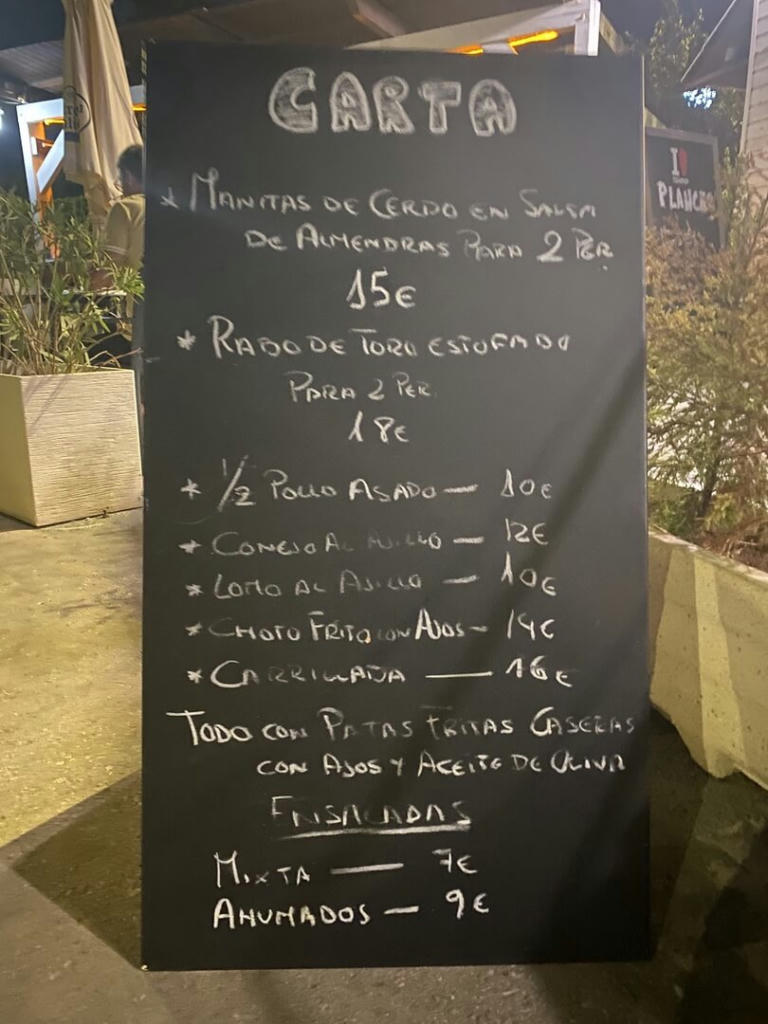 CARTA
* MANITAS DE CERDO EN SALSA
DE ALMENDRAS PARA 2 PER.
15€
* RABO DE TORO ESTOFADO
PARA 2 PER.
18€
* 1/2 POLLO ASADO — 10€
* CONEJO AL AJILLO — 12€
* LOMO AL AJILLO — 10€
* CHOTO FRITO CON AJOS — 14€
* CARRILLADA — 16€
TODO CON PATAS FRITAS CASERAS
CON AJOS Y ACEITE DE OLIVA
ENSALADAS
MIXTA — 7€
AHUMADOS — 9€
I
PLANCHS